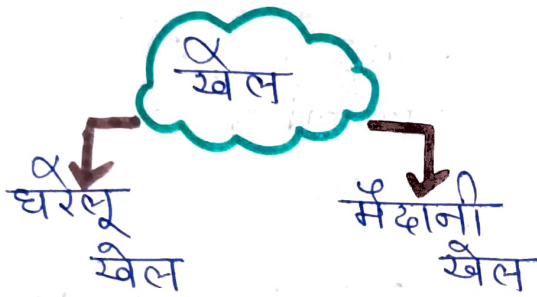 खेल
घरेलू
खेल
मैदानी
खेल